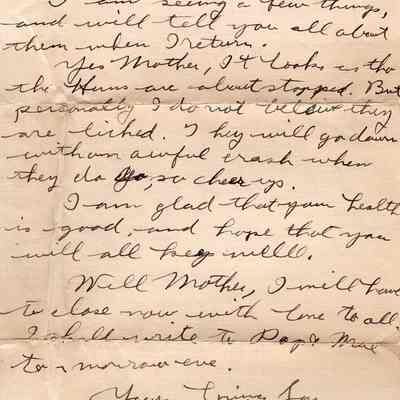 I am seeing a few things,
and will tell you all about
them when I return.
Yes Mother, It looks as tho
the Huns are about stopped. But
personally I do not believe they
are licked. They will go down
with an awful crash when
they do go, so cheer up.
I am glad that your health
is good, and hope that you
will all keep well.
Well Mother, I will have
to close now with love to all.
I shall write to Pop & Mae
to-morrow eve.
Your Loving Son